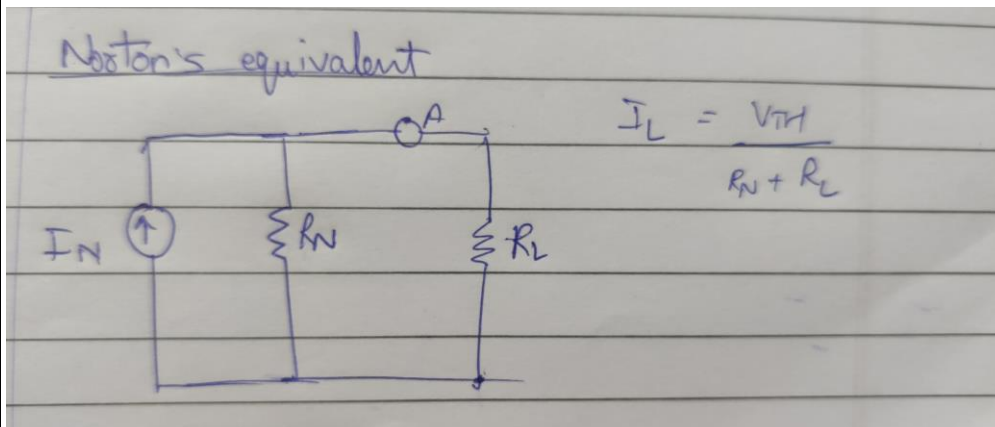 Norton's equivalent
A
I_L = V_TH / R_N + R_L
I_N
R_N
R_L